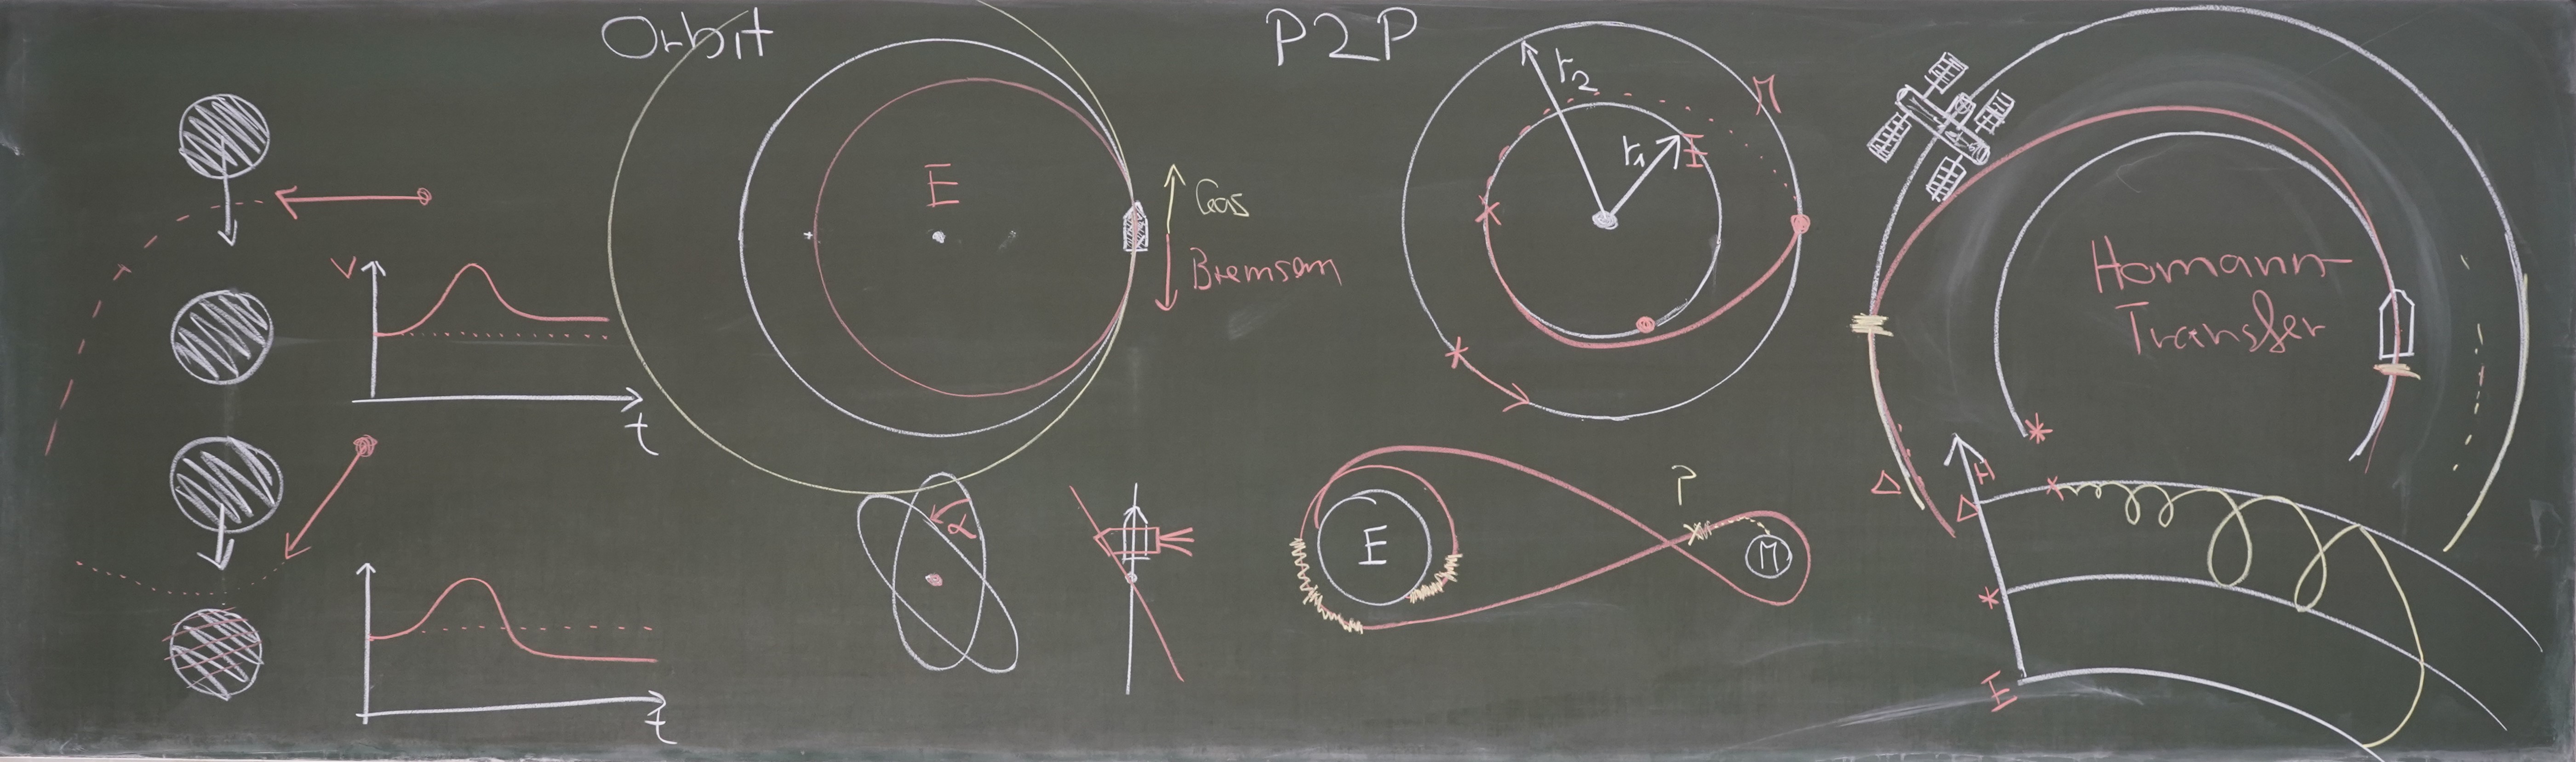 Orbit
P2P
E
Gas
Bremsen
V
t
t
α
r2
r1
M
E
E
P
M
Homann-
Transfer
H
E